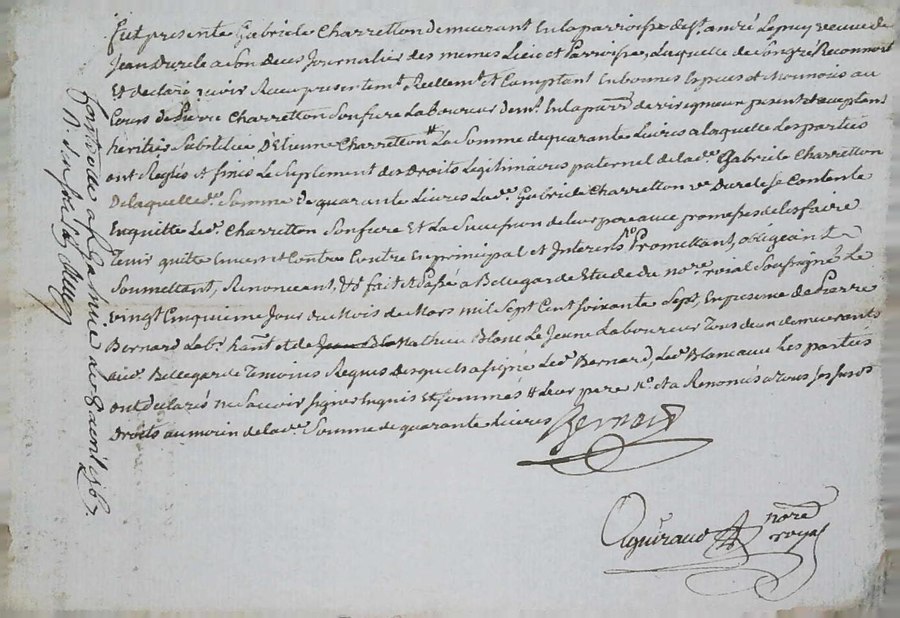 fut presente Gabriele Charretton demeurant en la parroisse de st. andré Lepuy veuve de
Jean Durele a son deces Journalier des memes Lieu et Parroisse, Laquelle de son gré Reconnoit
Et declare avoir Receu presentemt. Reellemt. et Comptant en bonnes Especes et monnois au
Cours de Pierre Charretton son frere Laboureur demt. en la parr. de viricqneux present et aceptant
heritier Substitué D'Etienne Charretton # La Somme de quarante Livres a laquelle Les parties
ont Reglés et fixés Le Suplement des Droits Legitimaires paternel de lade. Gabriele Charretton
De laquelle de. Somme De quarante Livres Lade. Gabriele Charretton ve. Durele se Contente
En quitte Led. Charretton Son frere Et La Sucession de leur pere avec promesses de les faire
Tenir quitte Envers et Contre Contre En principal et Interets Promettant, obligeant
Soumettant, Renonceant, &a fait et Passé a Bellegarde Etude du nore. roial Soussigné Le
vingt Cinquieme Jour du Mois de Mars mil Sept Cent Soixante Sept, En presence de Pierre
Bernard Labr. hant. et de Mathieu Blanc Le Jeune Laboureur Tous deux demeurants
aud. Bellegarde Temoins Requis Desquels a signé Led. Bernard, Led. Blanc avec Les parties
ont declarés ne Sçavoir signer Enquis Et Sommés # de leur pere et a Renoncés a Tous ses susd.
Droits au moien de lade. Somme de quarante Livres
Bernard
Aguiraud nore
royal
Controlé a St Galmier le 8 avril 1767